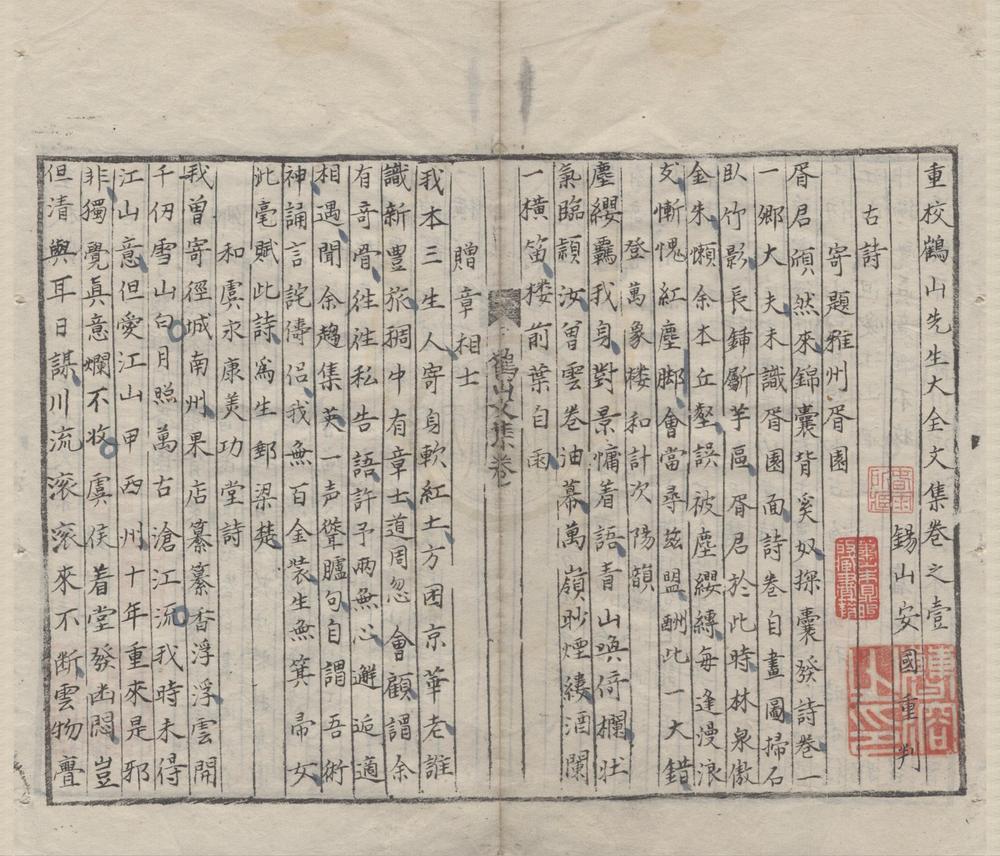 重校鶴山先生大全文集卷之壹
錫山安國重刋
古詩
寄題雅州胥園
胥君頎然來錦囊背奚奴探囊發詩卷一
一鄉大夫未識胥園面詩卷自畫圖掃石
臥竹影長鍤斸芋區胥君於此時林泉傲
金朱懶余本丘壑誤被塵纓縳每逢漫浪
叟慚愧紅塵脚會當尋茲盟酬此一大錯
登萬象樓和計次陽韻
塵纓羈我身對景慵着語青山喚倚欄壯
氣臨潁汝曾雲卷油幕萬嶺眇煙縷酒闌
一橫笛樓前葉自雨
鶴山文集卷一
贈章相士
我本三生人寄身軟紅土方困京華老誰
識新豐旅稠中有章士道周忽會顧謂余
有奇骨徃徃私告語許予兩無心邂逅適
相遇聞余趨集英一声聳臚句自謂吾術
神誦言詫儔侶我無百金裝生無箕帚女
泚毫賦此詩爲生郵梁楚
和虞永康美功堂詩
我曾寄徑城南州果店纂纂香浮浮雲開
千仞雪山白月照萬古滄江流我時未得
江山意但愛江山甲西州十年重來是邪
非獨覺眞意爛不收虞侯着堂發幽悶豈
但清與耳目謀川流滚滚來不断雲物疊